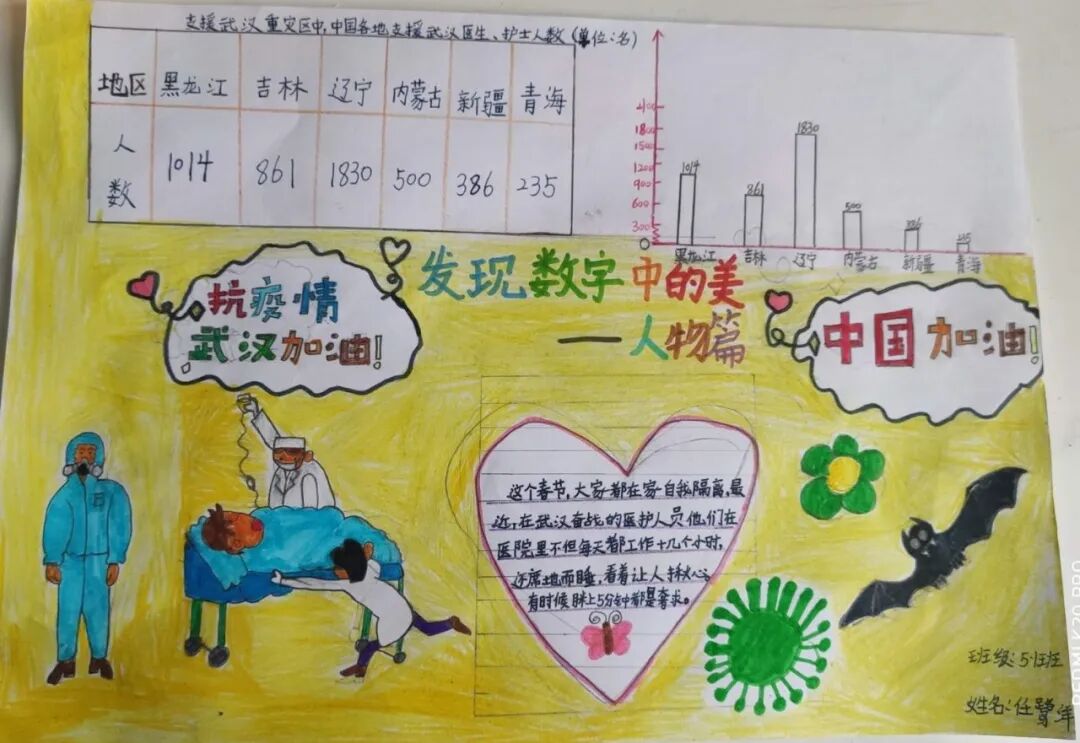 支援武汉重灾区中,中国各地支援武汉医生、护士人数(单位:名)
地区 黑龙江 吉林 辽宁 内蒙古 新疆 青海
人数 1014 861 1830 500 386 235
1800
1500
1200
900
600
300
0
1014
861
1830
500
386
235
黑龙江 吉林 辽宁 内蒙古 新疆 青海
抗疫情
武汉加油!
发现数字中的美
——人物篇
中国加油!
这个春节,大家都在家自我隔离,最
近,在武汉奋战的医护人员他们在
医院里不但每天都工作十几个小时,
还席地而睡,看着让人揪心。
有时候眯上5分钟都是奢求。
班级:5.1班
姓名:任鹭
REDMI K20 PRO